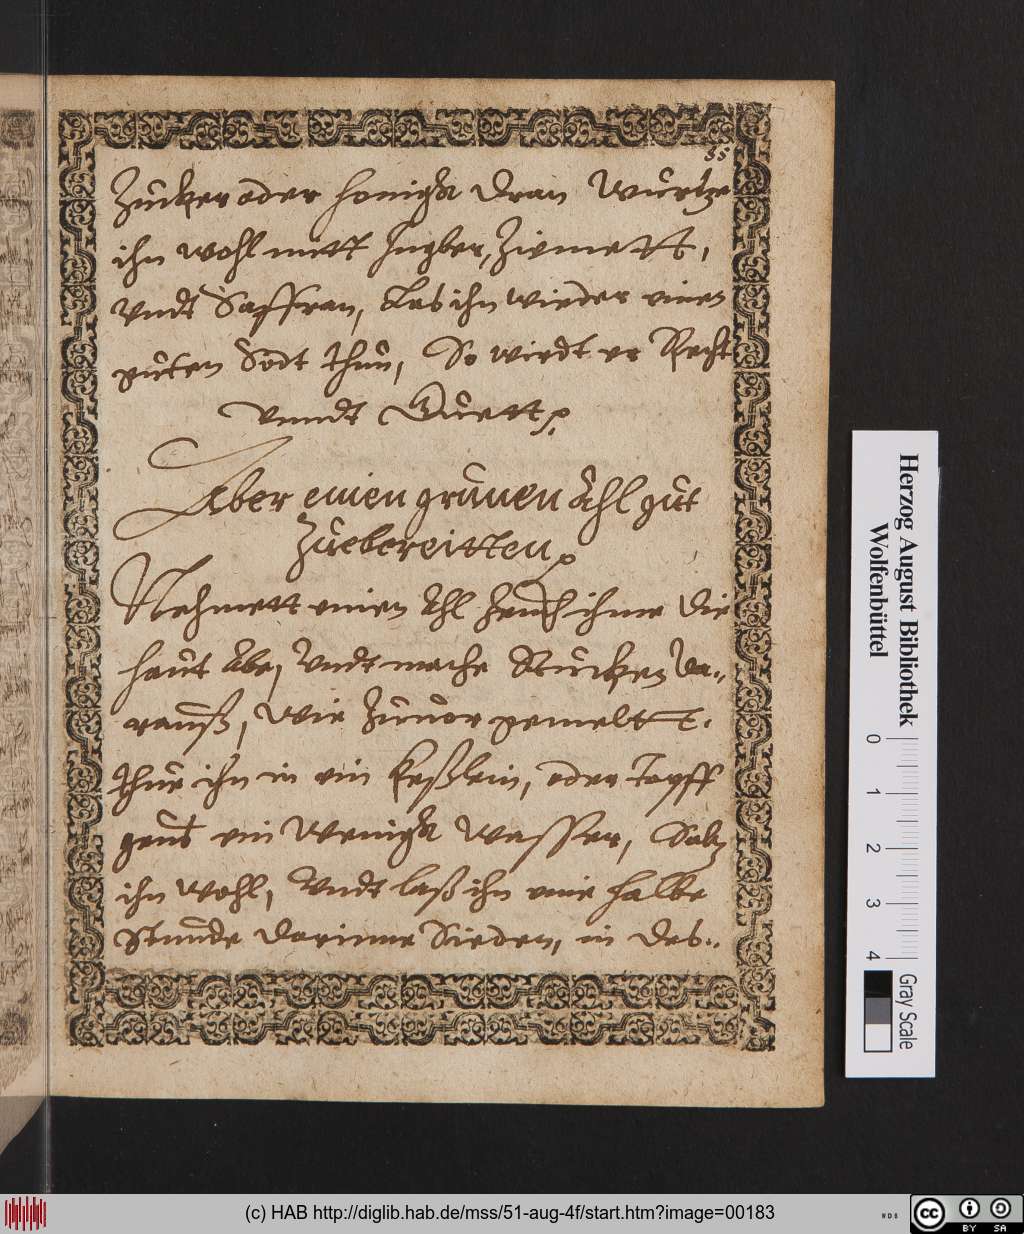 88
Zucker oder honigk dran Würtze
ihn wohl mett Ingber, Zimett,
Vndt Saffran, Las ihn wieder einen
guten Sodt thun, So wirdt er Recht
vnndt Guett
Aber einen grunen Ahl gut
Zuebereitten
Nehmett einen Ahl Zeuch ihme die
haut Abe, Vndt mache Stucken da..
rauß, wie Zuuor gemeltt.
thue ihn in ein Keßlein, oder topff
geus ein Wenigk Wasser, Saltz
ihn wohl, Vndt laß ihn eine halbe
Stunde darinne Sieden, in des..
Herzog August Bibliothek
Wolfenbüttel
0 1 2 3 4
Gray Scale
(c) HAB http://diglib.hab.de/mss/51-aug-4f/start.htm?image=00183
WDB
cc BY SA